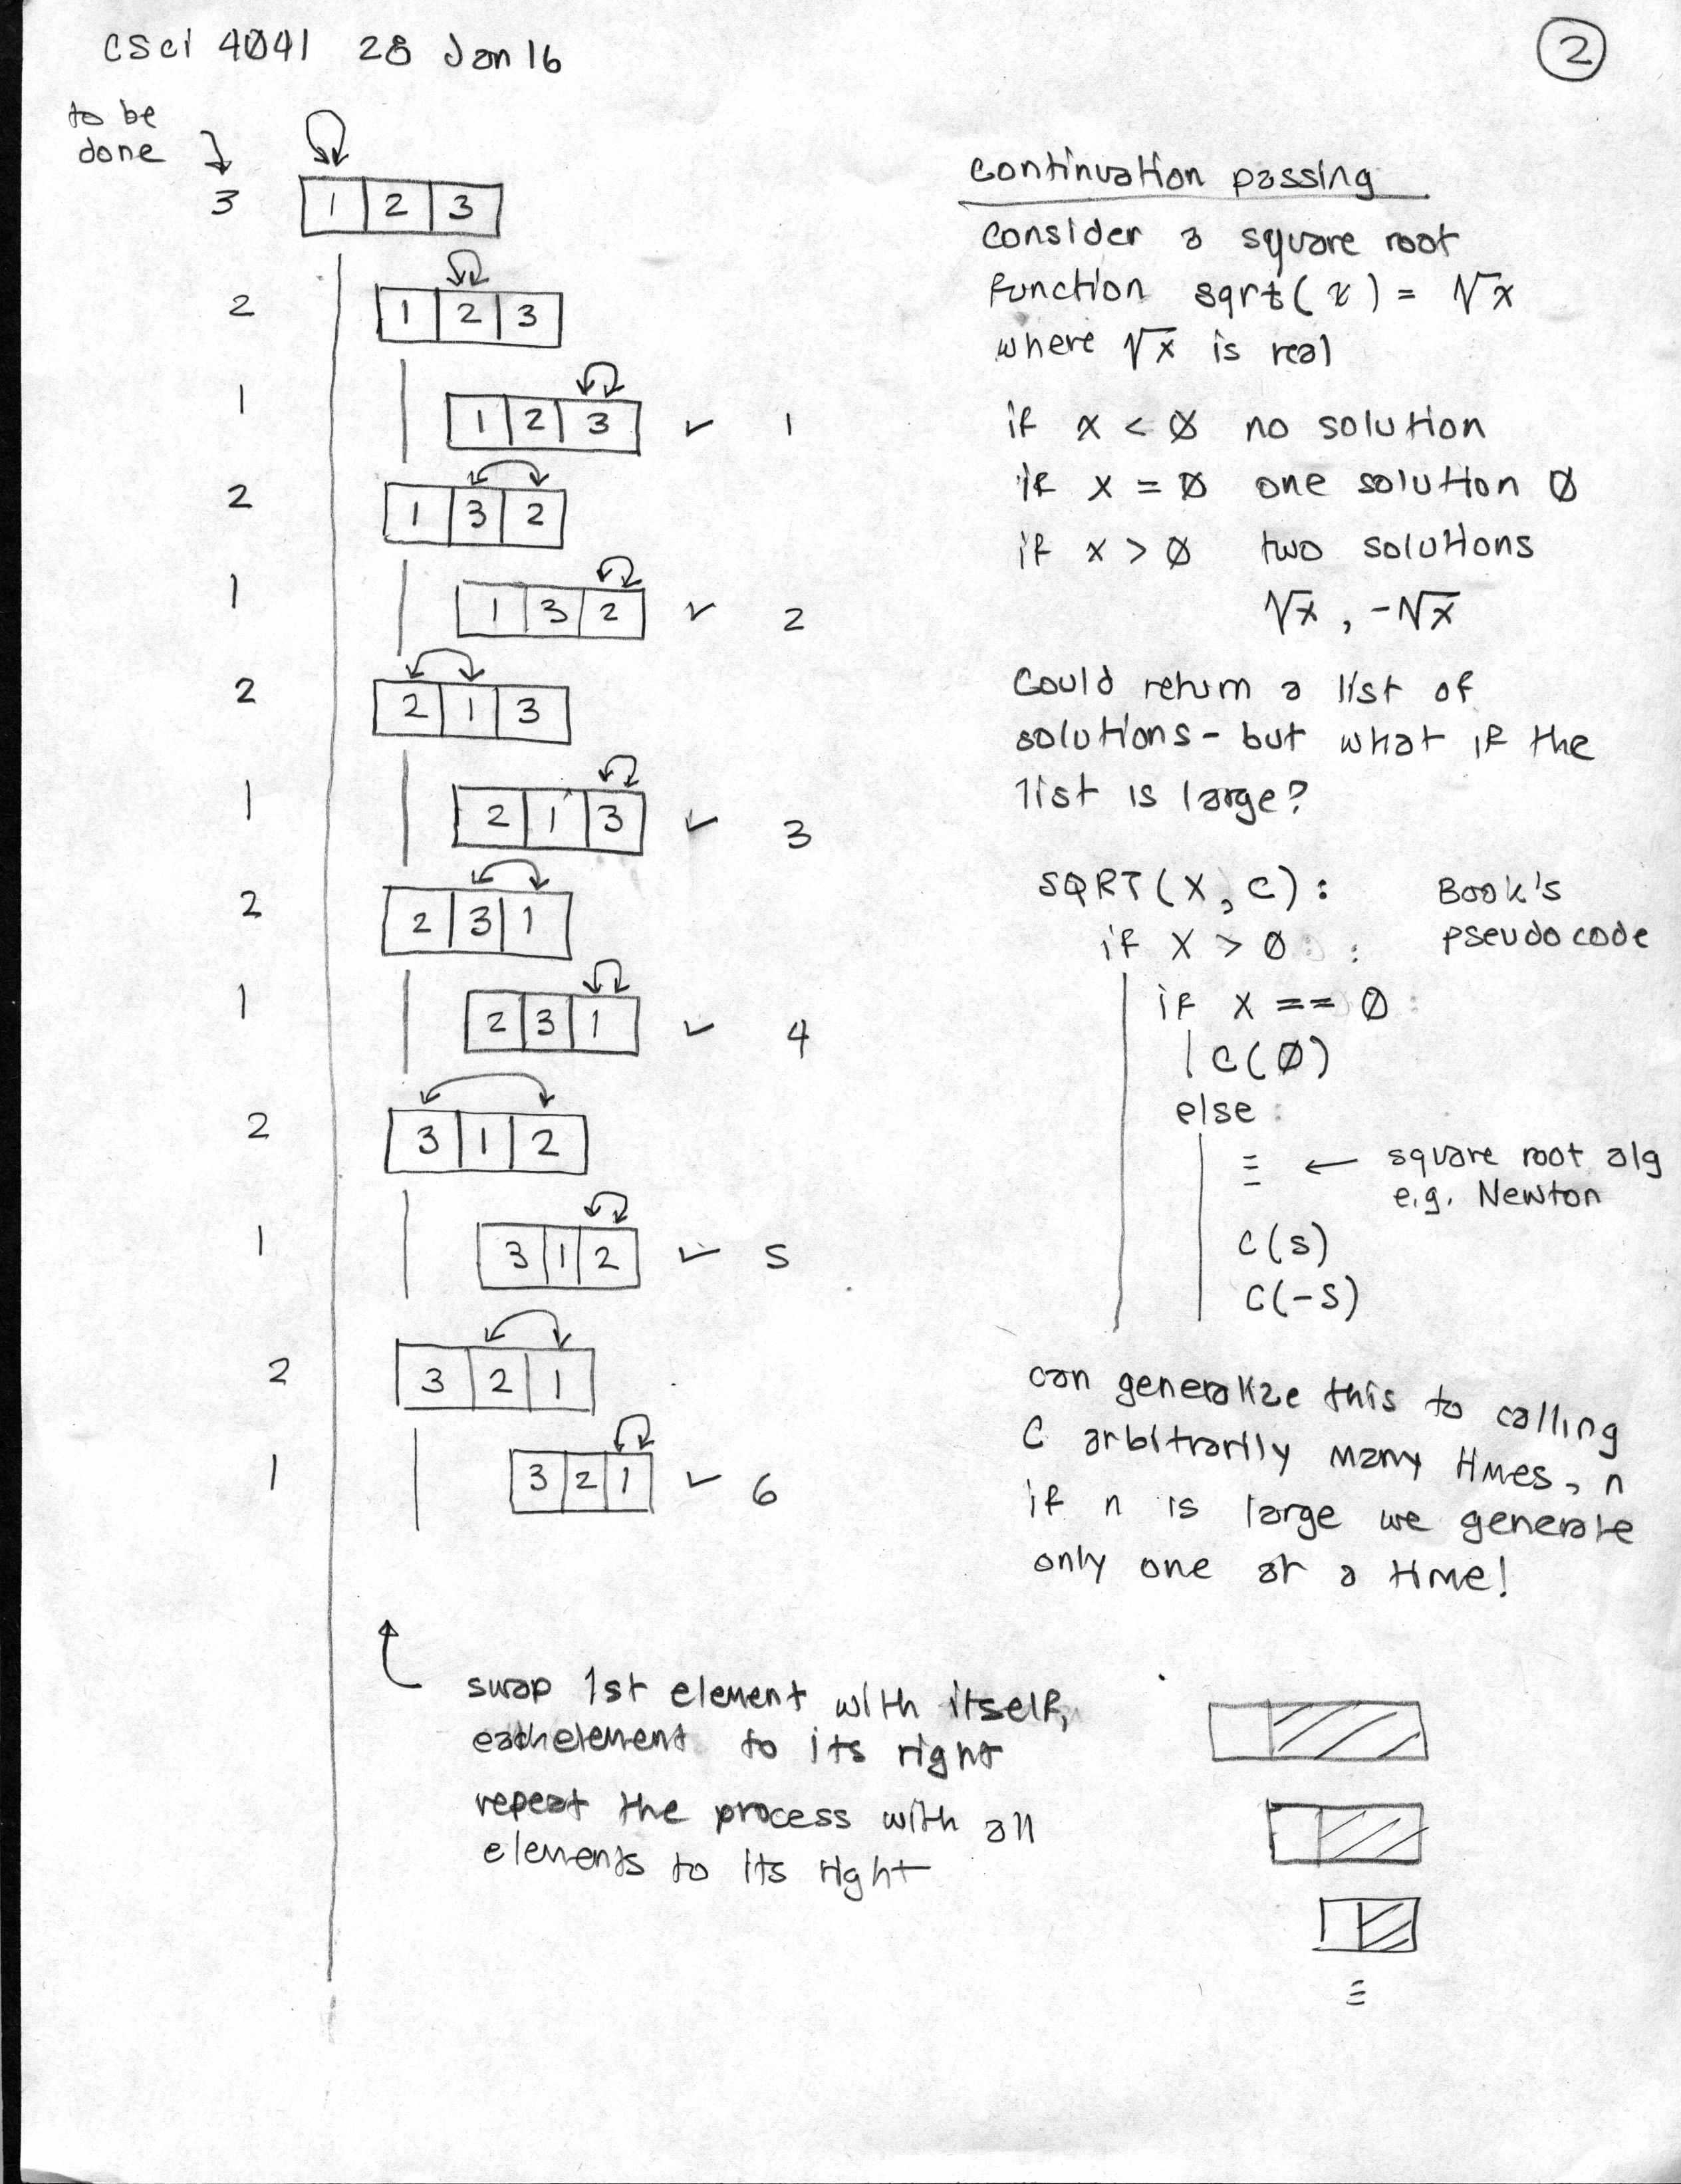 CSci 4041 28 Jan 16
2
to be
done
3 1 2 3
2 1 2 3
1 1 2 3 ✓ 1
2 1 3 2
1 1 3 2 ✓ 2
2 2 1 3
1 2 1 3 ✓ 3
2 2 3 1
1 2 3 1 ✓ 4
2 3 1 2
1 3 1 2 ✓ 5
2 3 2 1
1 3 2 1 ✓ 6
swap 1st element with itself,
each element to its right
repeat the process with all
elements to its right
continuation passing
Consider a square root
function sqrt(x) = √x
where √x is real
if x < 0 no solution
if x = 0 one solution 0
if x > 0 two solutions
√x, -√x
Could return a list of
solutions - but what if the
list is large?
SQRT(X, C): Book's
if X > 0 : pseudo code
if X == 0 :
C(0)
else :
≡ ← square root alg
e.g. Newton
C(S)
C(-S)
can generalize this to calling
C arbitrarily many times, n
if n is large we generate
only one at a time!